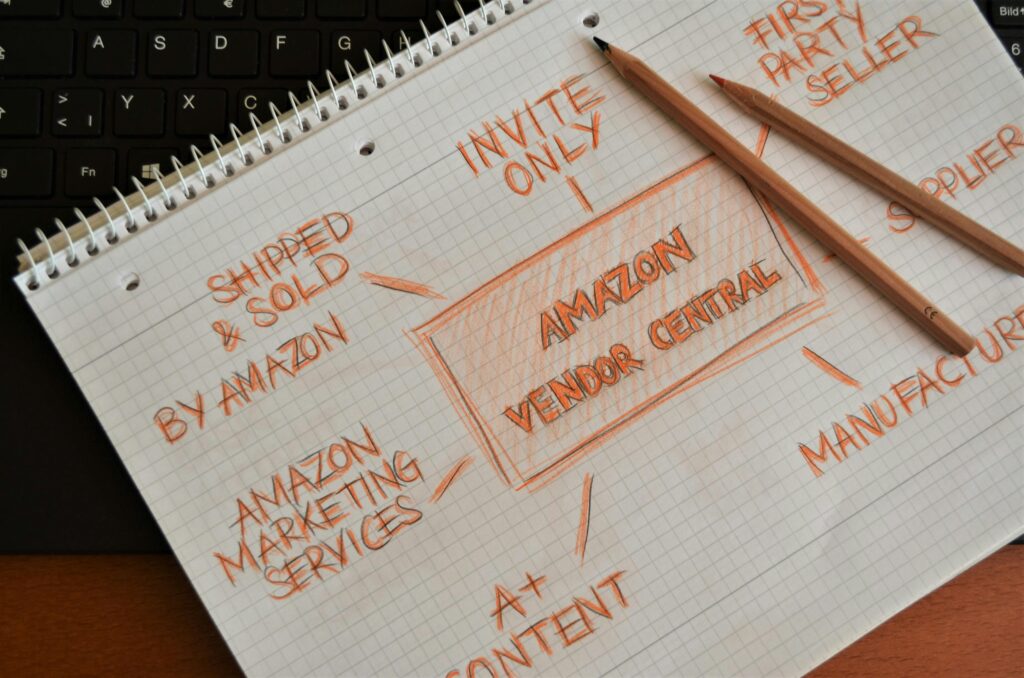 INVITE
ONLY
FIRST
PARTY
SELLER
SUPPLIER
SHIPPED
& SOLD
BY AMAZON
AMAZON
VENDOR CENTRAL
MANUFACTURE
AMAZON
MARKETING
SERVICES
A+
CONTENT
A
S
D
F
G
H
>
< |
Y
X
C
Fn
Bild
6
€
CE